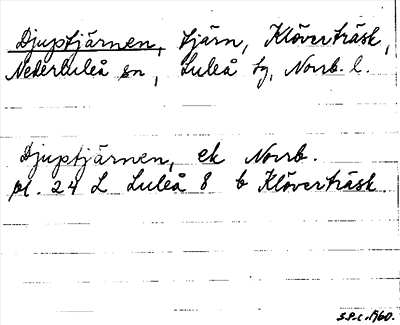 Djuptjärnen, tjärn, Klöverträsk,
Nederluleå sn, Luleå tg, Norrb. l.
Djuptjärnen, ek Norrb.
pl. 24 L Luleå 8 b Klöverträsk
S.P.C. 1960.